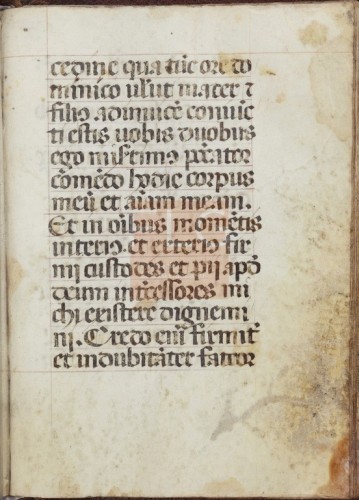 cedine qua tūc ore do
minico ul̄ut mater ⁊
filio adinuicē coniūc
ti estis uobis duobus
ego misrimo pc̄ator
cōmēdo hodie corpus
meū et aīam meam.
Et in oībus momētis
interio. et exterio fir
mi custodes et pii apđ
deum int̄cessores mi
chi existere dignemi
ni. Credo eni firmit̄
et indubitāter fateor